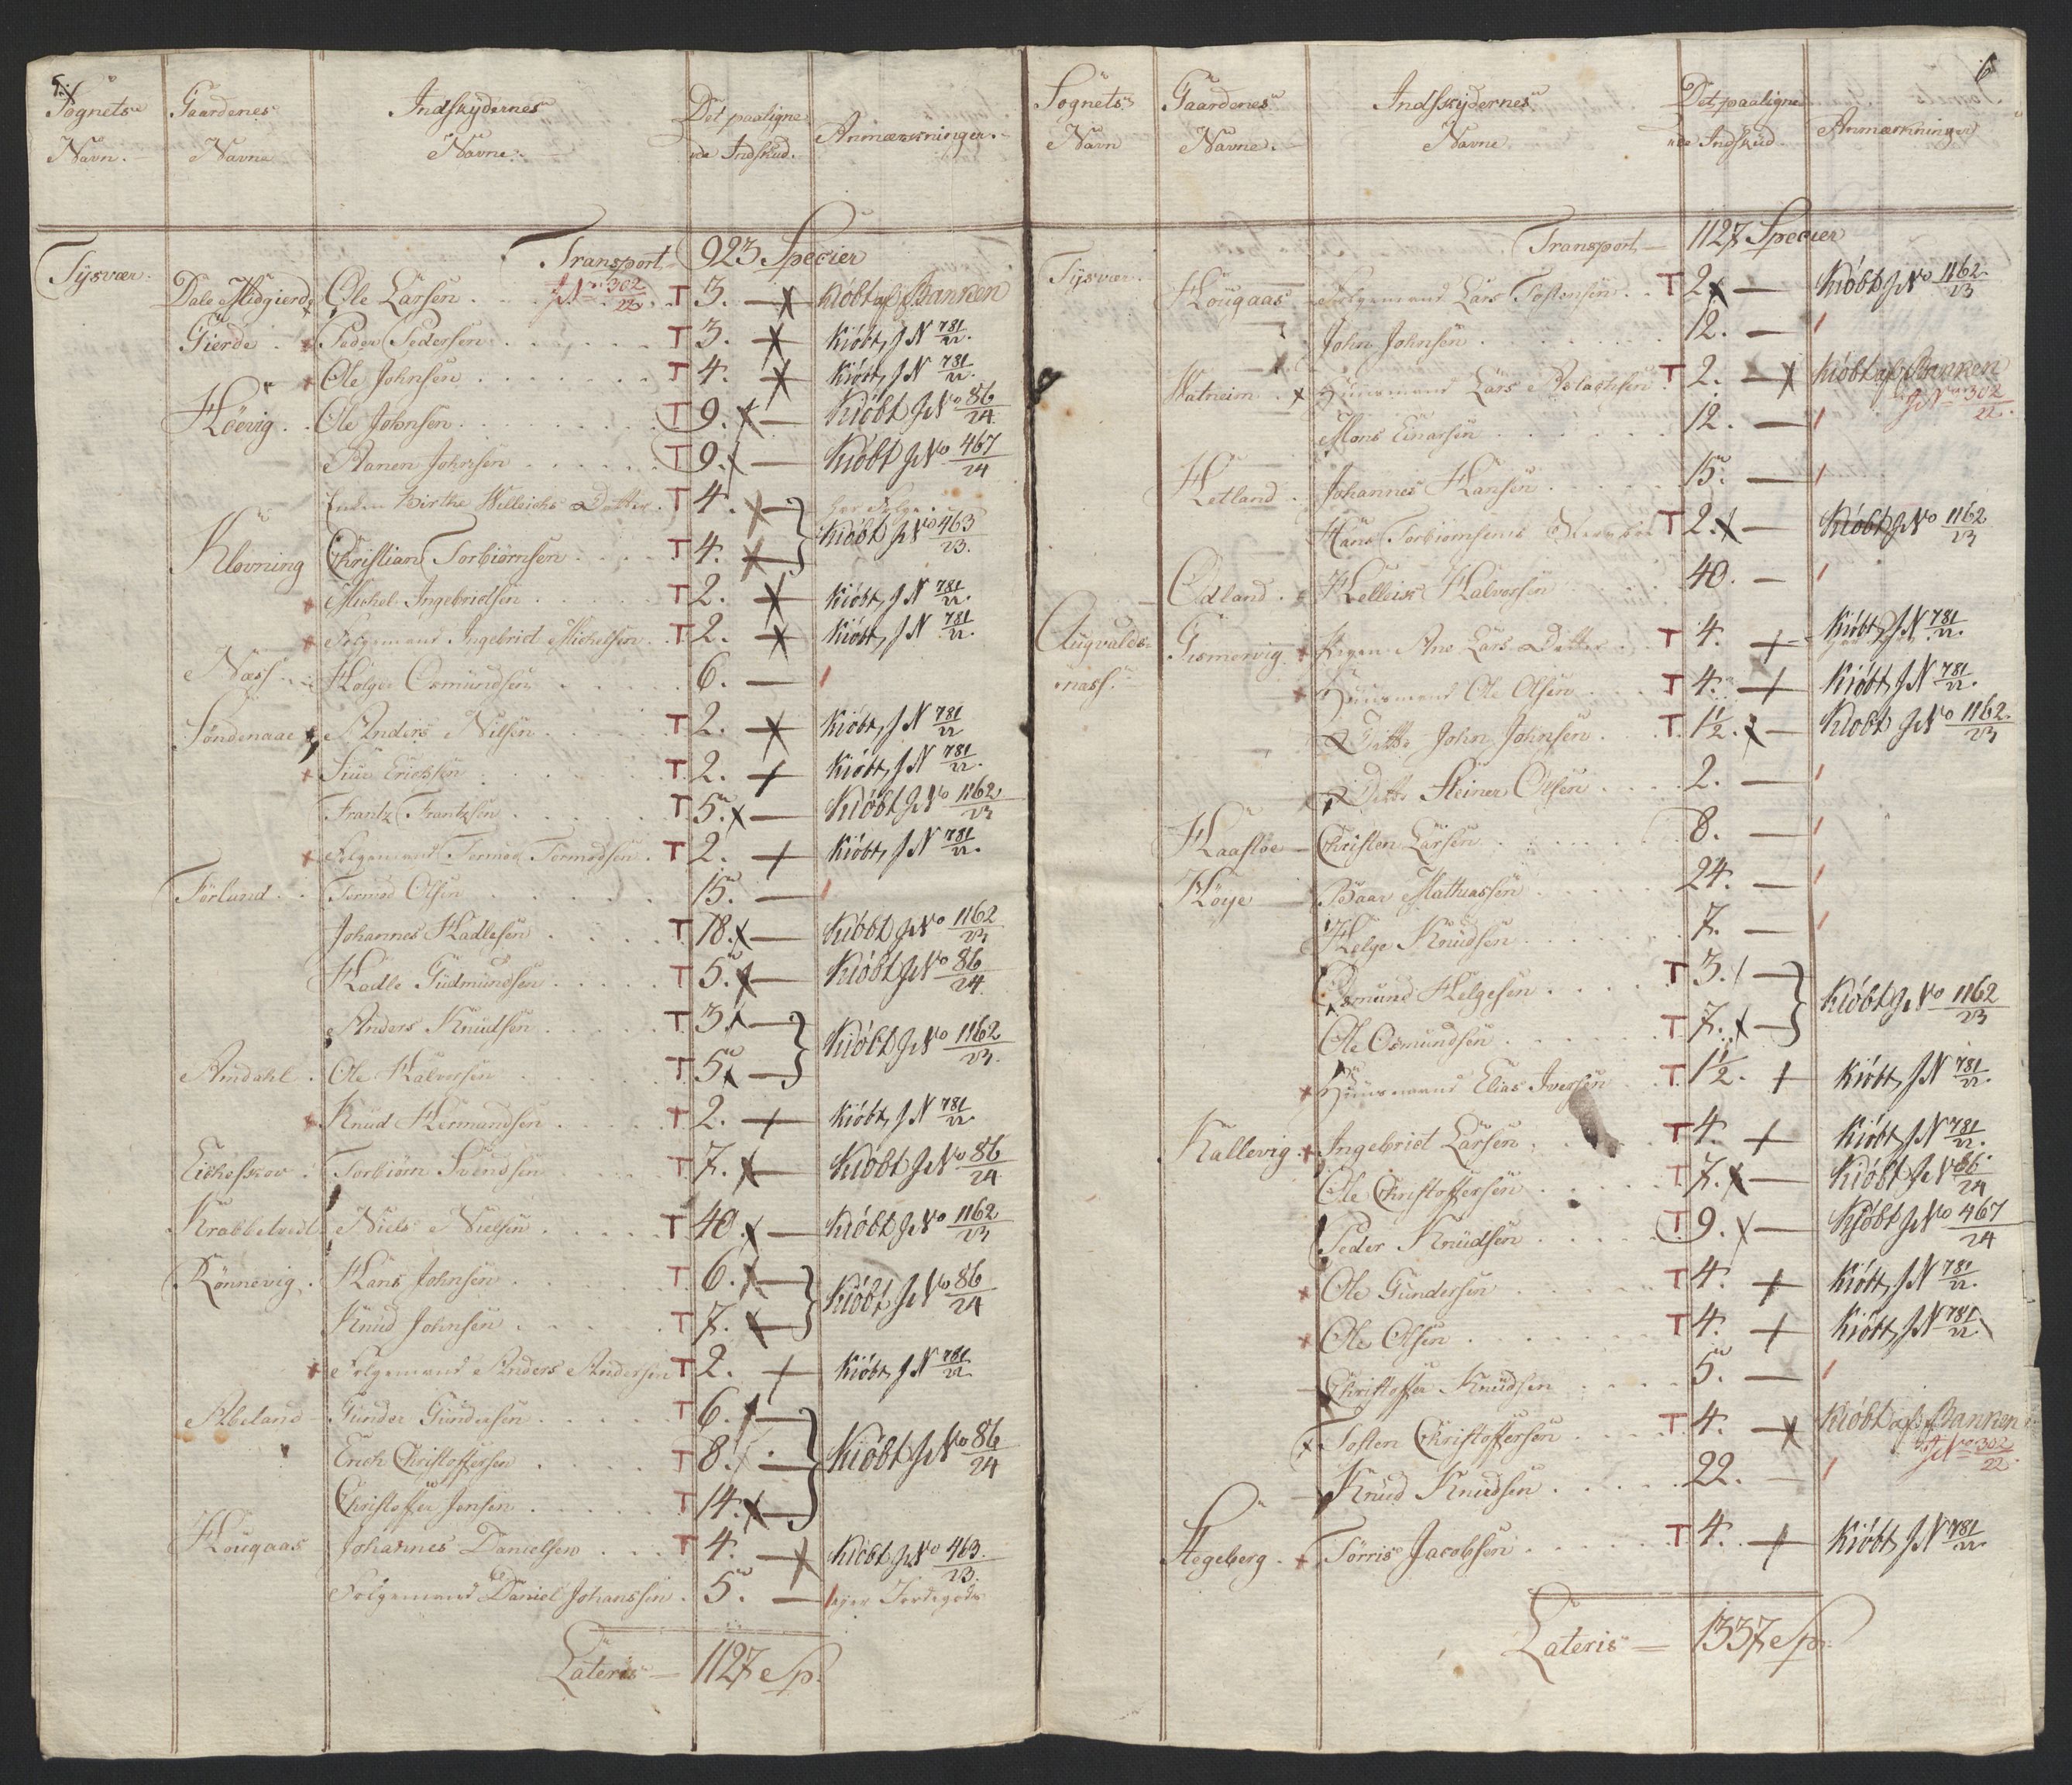 5.
Sognets Navn. Gaardenes Navne Indskydernes Navne. Det paaligne nde Indskud. Anmærkninger.
Transport 923 Specier
Tysvær. Dale Midgierde Ole Larsen . . J. No 302/22. T 3. — Kiöbt af Banken
Gierde . Peder Pedersen . . . T 3. — Kiöbt, J N 781/22.
Ole Johnsen . . . T 4. — Kiöbt, J N 781/22.
Höevig . . Ole Johnsen . . . T 9. — Kiöbt J No 86/24
Aanen Johnsen . . . T 9. — Kiöbt J No 467/24
Enken Birthe Willeichs Datter . T 4. —
Klovning Christian Torbiörnsen . . . T 4. — Kiöbt J No 463/23.
Michel Ingebrictsen . . . T 2. — Kiöbt, J N 781/22.
Folgemand Ingebrict Michelsen . . T 2. — Kiöbt, J N 781/22.
Næss . . Holger Osmundsen . . . 6. —
Söndenaae Anders Nilsen . . . T 2. — Kiöbt, J N 781/22
Siur Erichsen . . . T 2. — Kiöbt, J N 781/22.
Frantz Frantzsen . . . T 5. — Kiöbt J No 1162/23
Folgemand Tormod Tormodsen . T 2. — Kiöbt, J N 781/22.
Förland . . Tormod Olsen . . . 15. —
Johannes Hadlesen . . . T 18. — Kiöbt J No 1162/23
Hadle Gudmundsen . . . T 5. — Kiöbt J No 86/24.
Anders Knudsen . . . T 3. —
Amdahl . Ole Halvorsen . . . T 5. — Kiöbt J No 1162/23.
Knud Hermandsen . . . T 2. — Kiöbt, J N 781/22.
Eichesskov . Torbiörn Svendsen . . . T 7. — Kiöbt J No 86/24
Krabbetvedt Niels Nielsen . . . T 40. — Kiöbt J No 1162/23
Rönnevig . Hans Johnsen . . . T 6. —
Knud Johnsen . . . T 7. — Kiöbt J No 86/24
Folgemand Anders Andersen T 2. — Kiöbt, J N 781/22
Apeland Gunder Gundersen . . . T 6. —
Erich Christoffersen . . . T 8. — Kiöbt J No 86/24
Christoffer Jensen . . . T 14. —
Hougaas Johannes Danielsen . . . T 4. — Kiöbt J No 463./23.
Folgemand Daniel Johanssen . 5. — ejer Jordegods
Lateris — 1127 Sp.
6
Sognets Navn Gaardenes Navne. Indskydernes Navne Det paaligne nde Indskud. Anmærkninger
Transport — 1127 Specier
Tysvær. Hougaas Folgemand Lars Tostensen . . T 2 — Kiöbt J No 1162./23
John Johnsen . . . 12. —
Watneim . . Huusmand Lars Aslachsen . T 2. — Kiöbt af Banken
J No 302/22.
Mons Einarsen . . . 12. —
Hetland . Johannes Hansen . . . 15. —
Hans Torbiörnsens T 2. — Kiöbt J No 1162/23
Odland . Hellich Halvorsen . . . 40. —
Augvalds-næss. Gismervig Pigen Ane Lars Datter . . T 4. — Kiöbt, J N 781/22.
Huusmand Ole Olsen . . . T 4. — Kiöbt, J N 781/22.
Ditto John Johnsen . . . T 1½. — Kiöbt J No 1162./23
Ditto Steiner Olsen . . . 2. —
Haasloe Christen Larsen . . . 8. —
Höye Baar Mathiassen . . . 24. —
Helge Knudsen . . . 7. —
Osmund Helgesen . . . T 3. —
Ole Osmundsen . . . T 7. — Kiöbt J No 1162/23
Huusmand Elias Iversen . T 1½. — Kiöbt, J N 781/22.
Kallevig . Ingebrict Larsen . . . T 4. — Kiöbt, J N 781/22.
Ole Christoffersen . . . T 7. — Kiöbt J No 86/24
Peder Knudsen . . . T 9. — Kiöbt J No 467/24
Ole Gundersen . . . T 4. — Kiöbt, J N 781/22.
Ole Olsen . . . T 4. — Kiöbt, J N 781/22
Christoffer Knudsen . . . 5. —
Tosten Christoffersen . . . T 4. — Kiöbt af Banken
J No 302/22.
Knud Knudsen . . . 22. —
Stegeberg . Törris Jacobsen . . . T 4. — Kiöbt, J N 781/22.
Lateris — 1337 Sp.